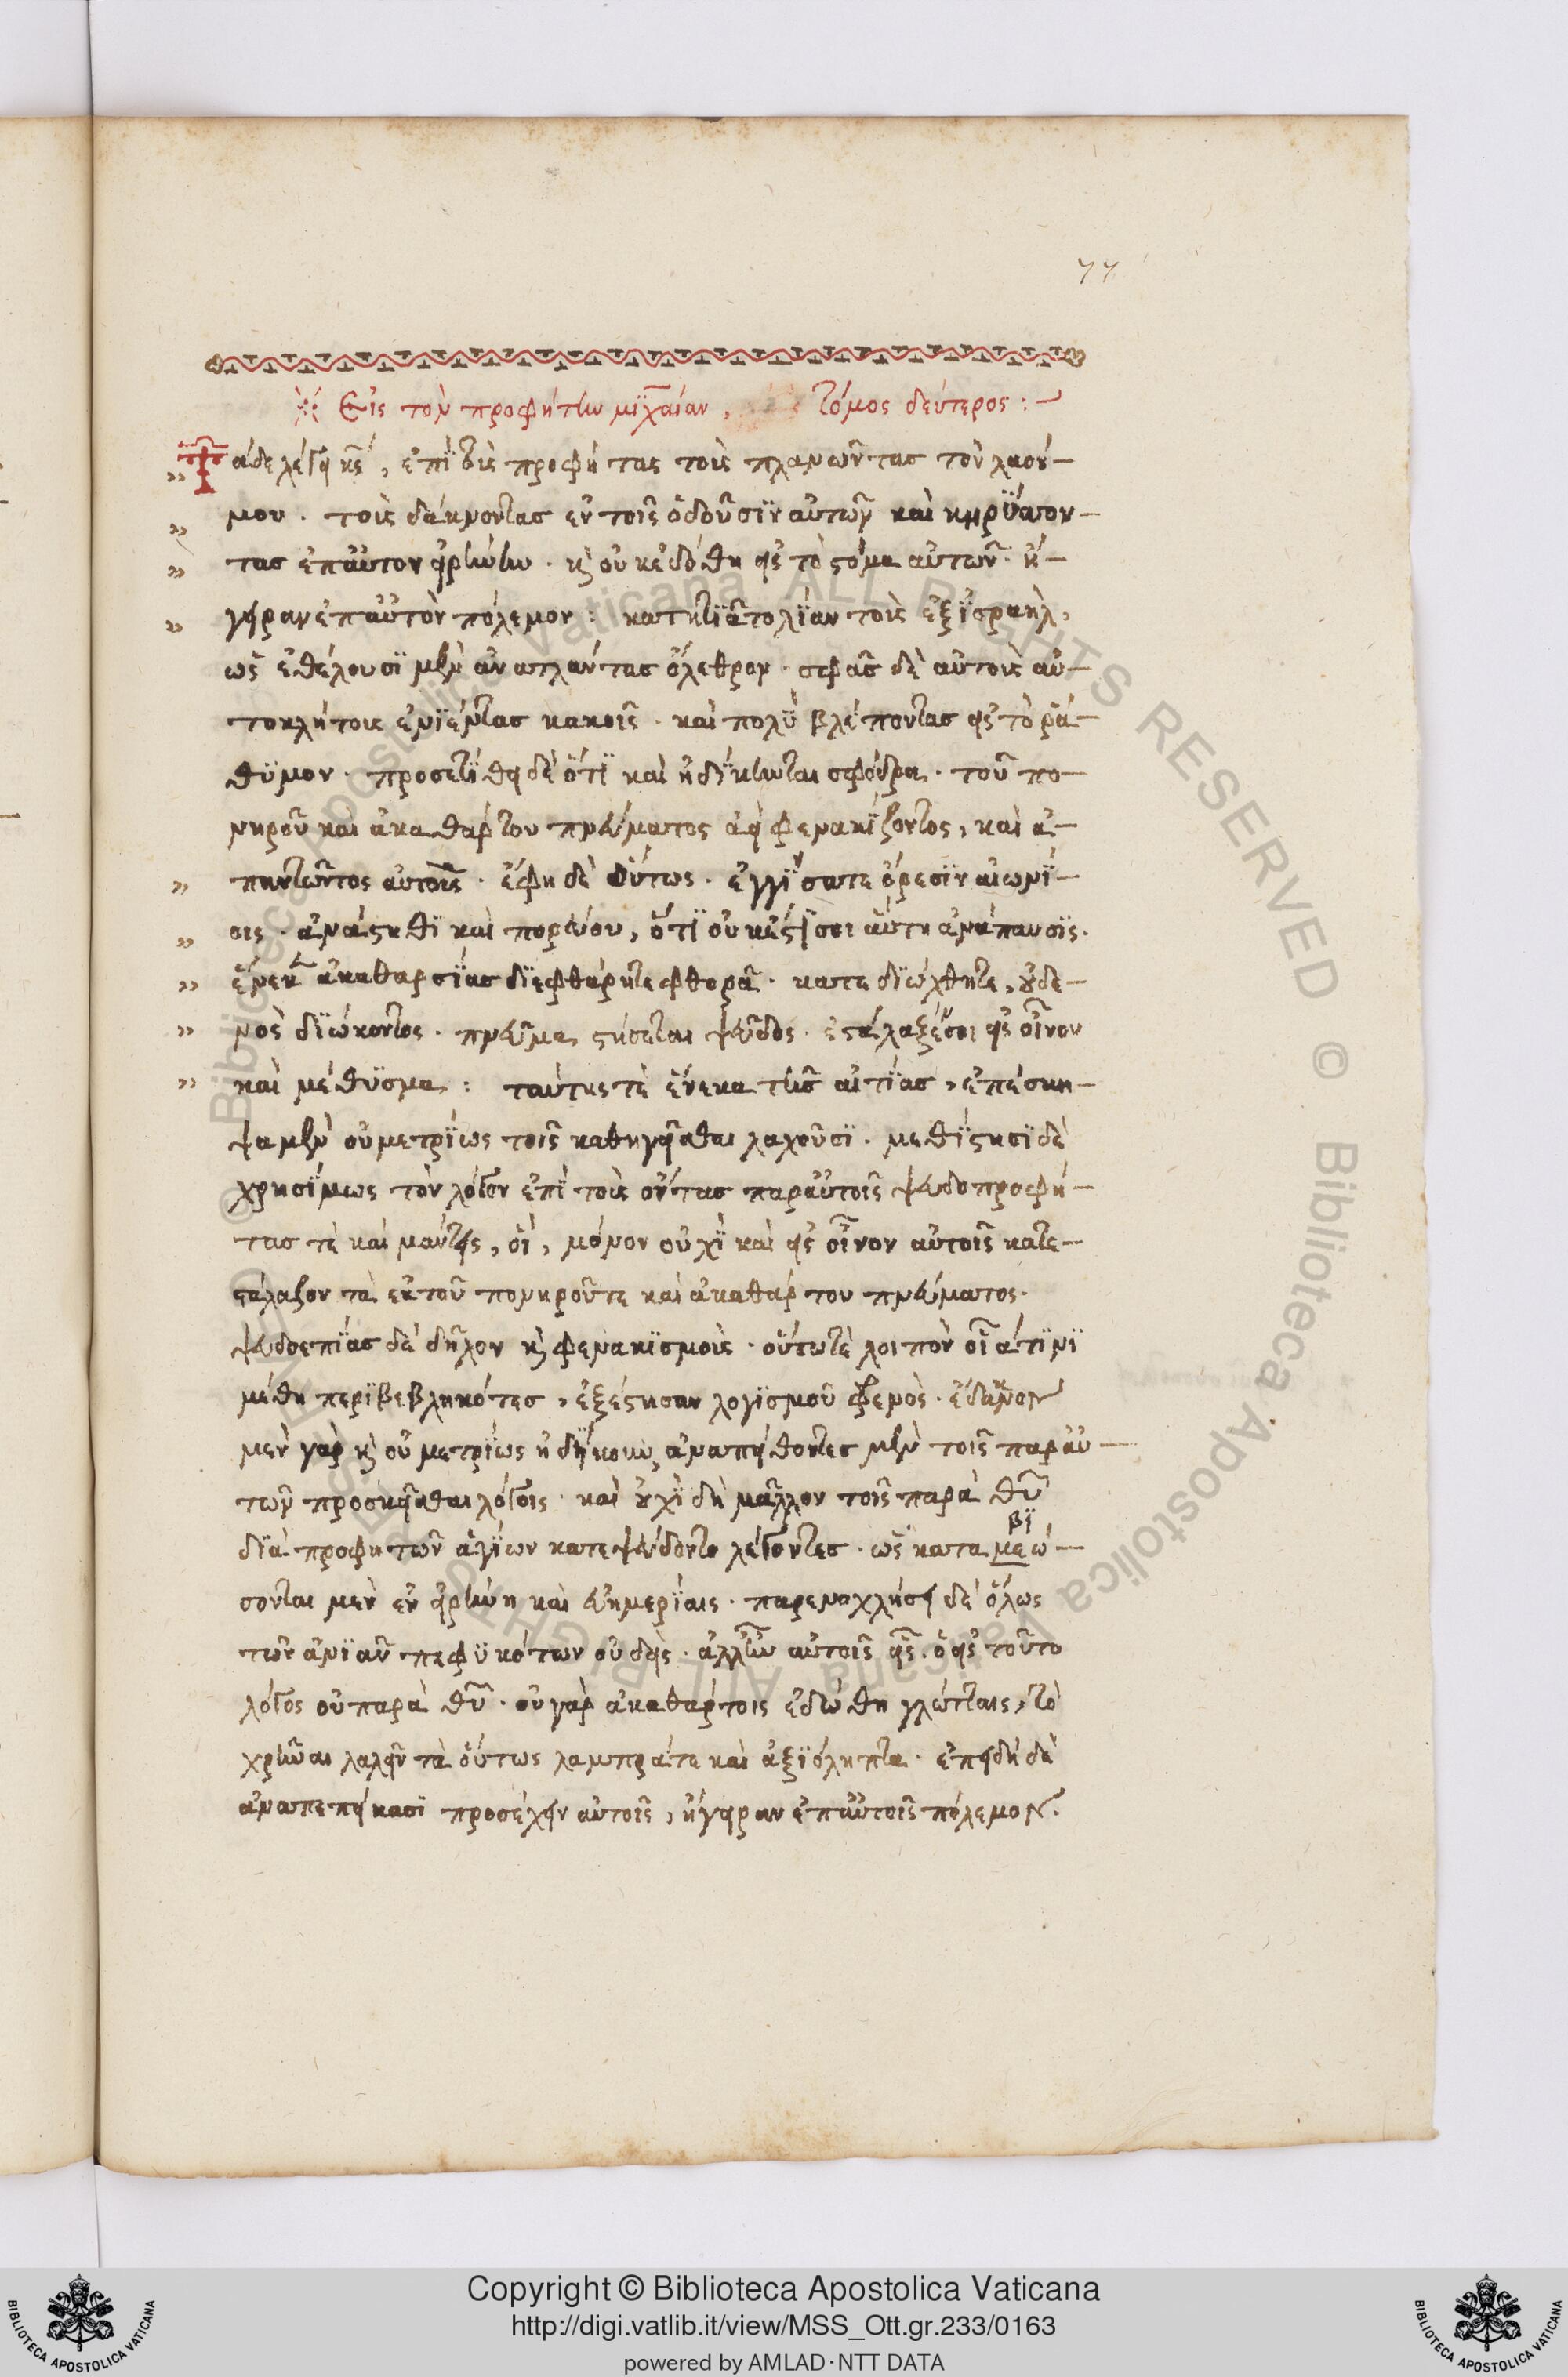 77
Εἰς τὸν προφήτην μϊχαίαν, τόμος δεύτερος :~
Τάδε λέγει κς, ἐπῒ τοὺς προφήτας τοὺς πλανῶντας τὸν λαόν
μου. τοὺς δάκνοντας ἐν τοῖς ὀδοῦσϊν αὐτῶν καὶ κηρΰσσον-
τας ἐπ αὐτον εἰρήνην. κ(αὶ) οὐκ ἐδόθη εἰς τὸ στόμα αὐτῶν. ἤ-
γειραν ἐπ αὐτὸν πόλεμον : κατητϊᾶτο λίαν τοὺς ἐξ ἰ̈σραὴλ,
ὡς ἐθέλουσϊ μὲν ἀνατλάντας ὄλεθρον. σφᾶς δὲ αὐτοὺς αὐ-
τοκλήτοις ἐνϊέντας κακοῖς. καὶ πολῢ βλέποντας εἰς τὸ ῥά-
θϋμον. προσετΐθει δὲ ὅτϊ καὶ ἠδΐκηνται σφόδρα. τοῦ πο-
νηροῦ καὶ ἀκαθάρτου πνεύματος ἀεὶ φενακΐζοντος, καὶ ἀ-
παντῶντος αὐτοῖς. ἔφη δὲ οὕτως. ἐγγΐσατε ὄρεσϊν αἰωνΐ-
οις. ἀνάστηθϊ καὶ πορεύου, ὅτϊ οὐκ ἔστϊ σοι αὕτη ἀνάπαυσϊς.
ἕνεκ(εν) ἀκαθαρσΐας δϊεφθάρητε φθορᾶ. κατεδϊώχθητε, οὐδε-
νὸς δϊώκοντος. πνεῦμα στήσεται ψεῦδος. ἐστάλαξέν σοι εἰς οἶνον
καὶ μέθϋσμα : ταύτης τὲ ἕνεκα τῆς αἰτΐας, ἐπέσκη-
ψα μὲν οὐ μετρΐως τοῖς καθηγεῖσθαι λαχοῦσϊ. μεθΐστησϊ δὲ
χρησΐμως τὸν λόγον ἐπῒ τοὺς ὄντας παρ αὐτοῖς ψευδοπροφή-
τας τὲ καὶ μάντεις, οἳ, μόνον οὐχῒ καὶ εἰς οἶνον αὐτοῖς κατε-
στάλαξον τὰ ἐκ τοῦ πονηροῦ τε καὶ ἀκαθάρτου πνεύματος.
ψευδοεπΐας δὲ δῆλον κ(αὶ) φενακϊσμοὺς. οὕτω τὲ λοιπὸν οἷα τϊνῒ
μέθη περϊβεβληκότες, ἐξέστησαν λογϊσμοῦ φρενὸς. ἔδακνον
μὲν γὰρ κ(αὶ) οὐ μετρΐως ἠδΐκουν ἀναπείθοντες μὲν τοῖς παρ αὐ-
τῶν προσκεῖσθαι λόγοις. καὶ οὐχῒ δὴ μᾶλλον τοῖς παρὰ θυ
δϊὰ προφητῶν ἁγΐων κατεψεύδοντο λέγοντες. ὡς καταβϊμεώ-
σονται μὲν ἐν εἰρήνη καὶ εὐημερΐαις. παρενοχλήσει δὲ ὅλως
τῶν ἀνϊᾶν πεφϋκότων οὐδεὶς. ἀλλ ἦν αὐτοῖς εἷς. ὁ εἰς τοῦτο
λόγος οὐ παρὰ θυ. οὐ γὰρ ἀκαθάρτοις ἐδώθη γλώτταις, τὸ
χρῆναι λαλεῖν τὰ οὕτως λαμπρά τε καὶ ἀξϊόληπτα. ἐπειδὴ δὲ
ἀναπεπείκασϊ προσέχειν αὐτοῖς, ἤγειραν ἐπ αὐτοῖς πόλεμον.
Copyright © Biblioteca Apostolica Vaticana
http://digi.vatlib.it/view/MSS_Ott.gr.233/0163
powered by AMLAD·NTT DATA